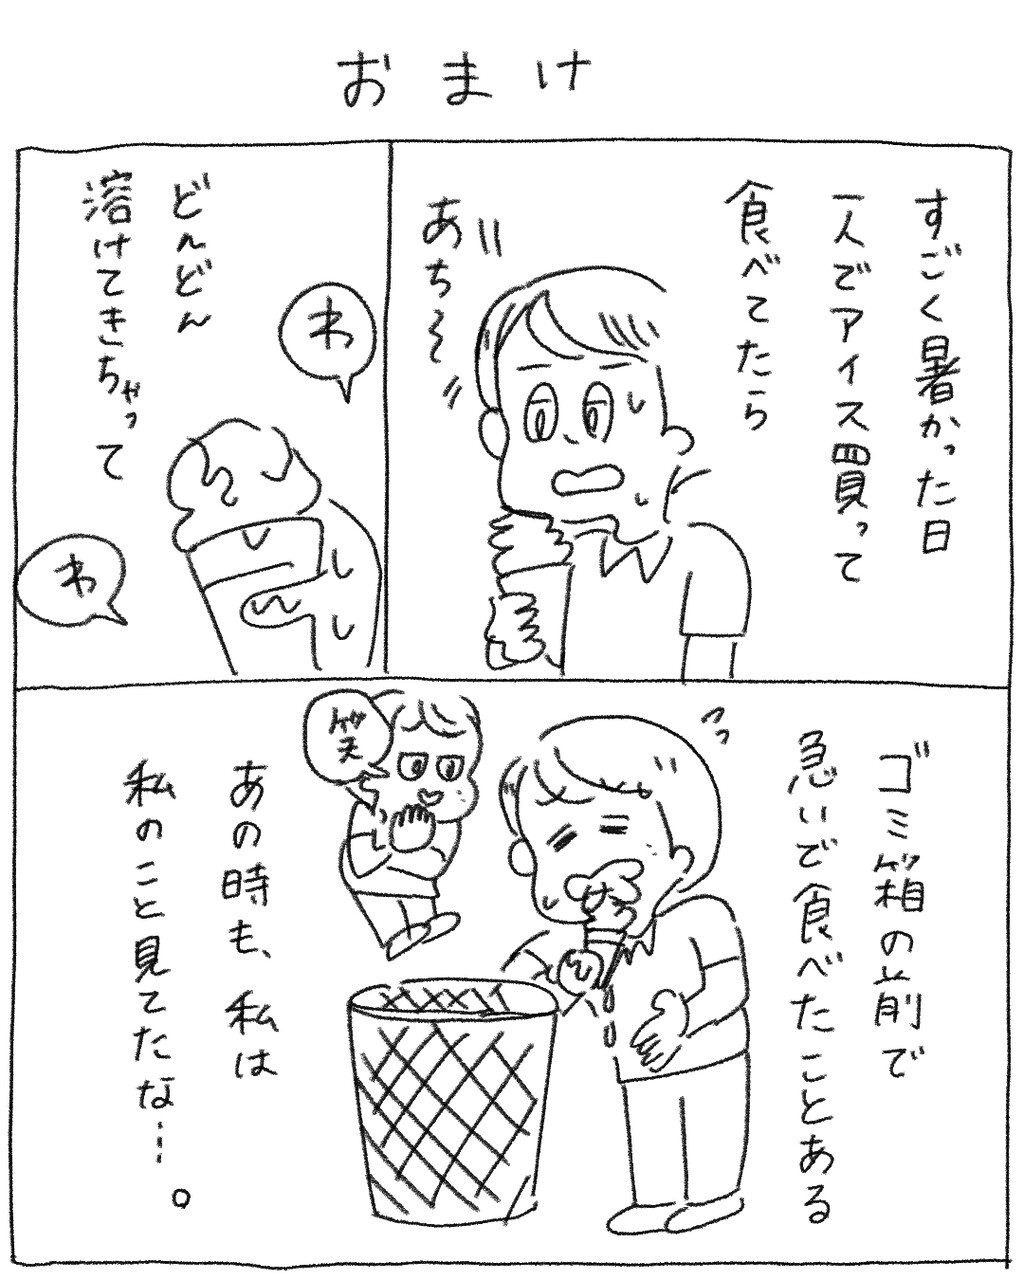 おまけ
すごく暑かった日
一人でアイス買って
食べてたら
あち〜
どんどん
溶けてきちゃって
わ
わ
ゴミ箱の前で
急いで食べたことある
笑
あの時も、私は
私のこと見てたな…。